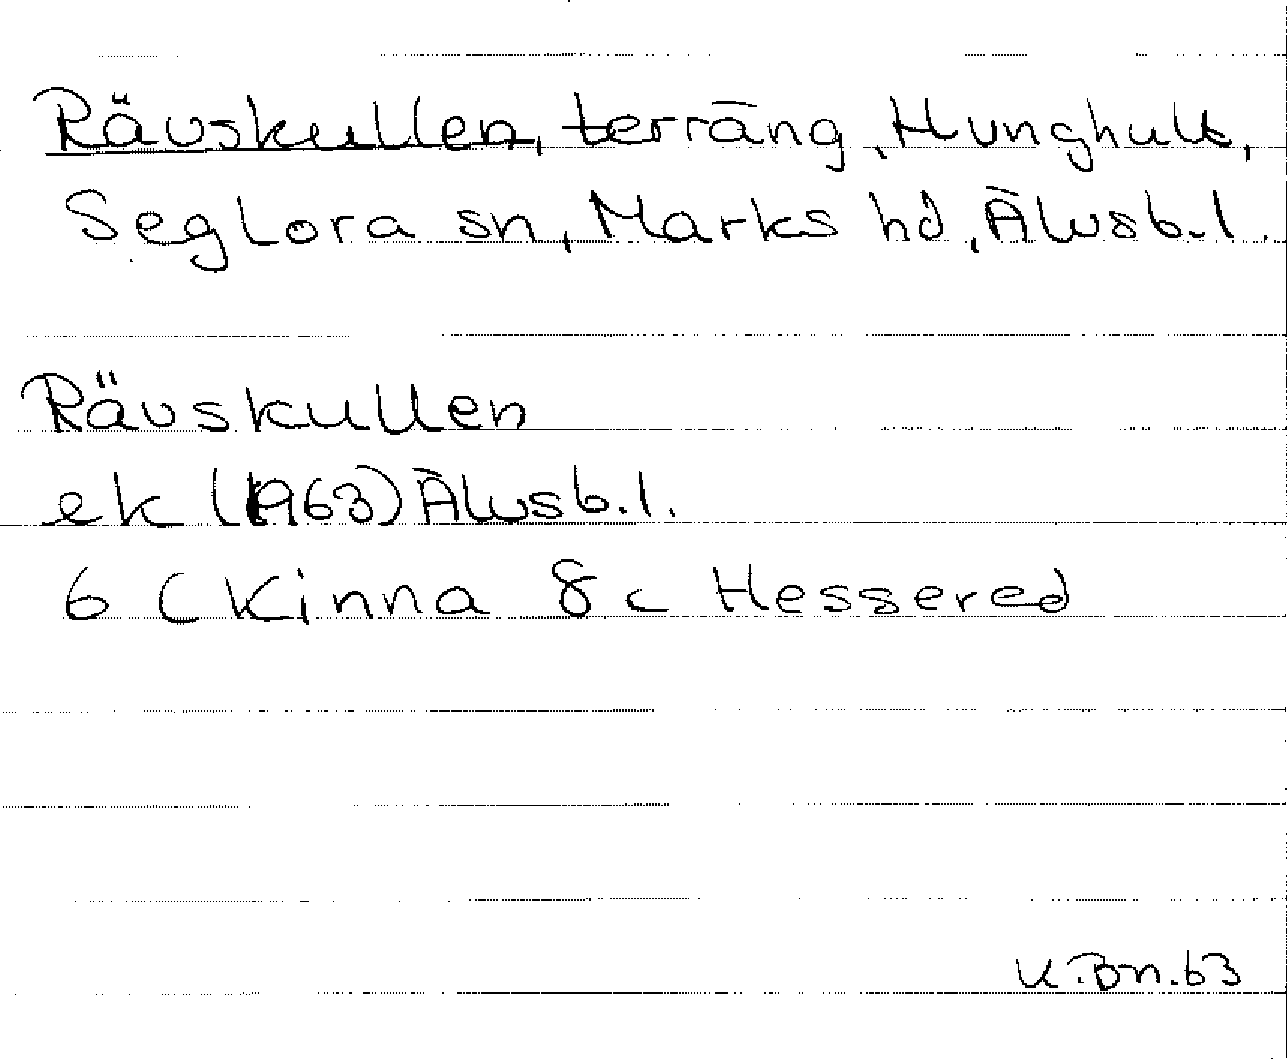 Rävskullen, terräng, Hunghult,
Seglora sn, Marks hd, Älvsb.l.
Rävskullen
ek (1963) Älvsb.l.
6 C Kinna 8 c Hessered
K.Bn.63